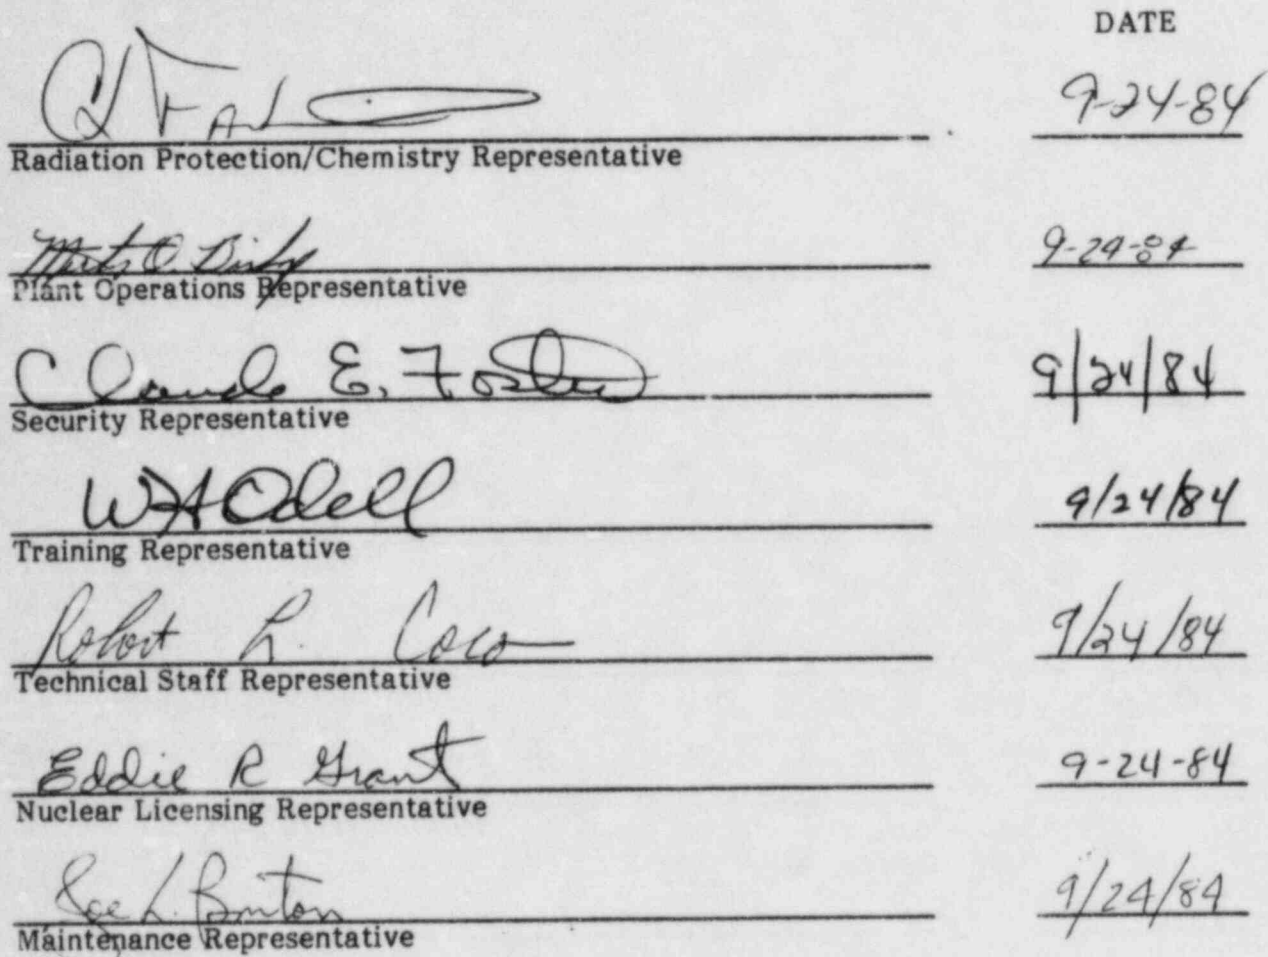 DATE
9-24-84
Radiation Protection/Chemistry Representative
9-24-84
Plant Operations Representative
Claude E. Foster 9/24/84
Security Representative
WHOdell 9/24/84
Training Representative
Robert L. Coco 9/24/84
Technical Staff Representative
Eddie R Grant 9-24-84
Nuclear Licensing Representative
L. Burton 9/24/84
Maintenance Representative